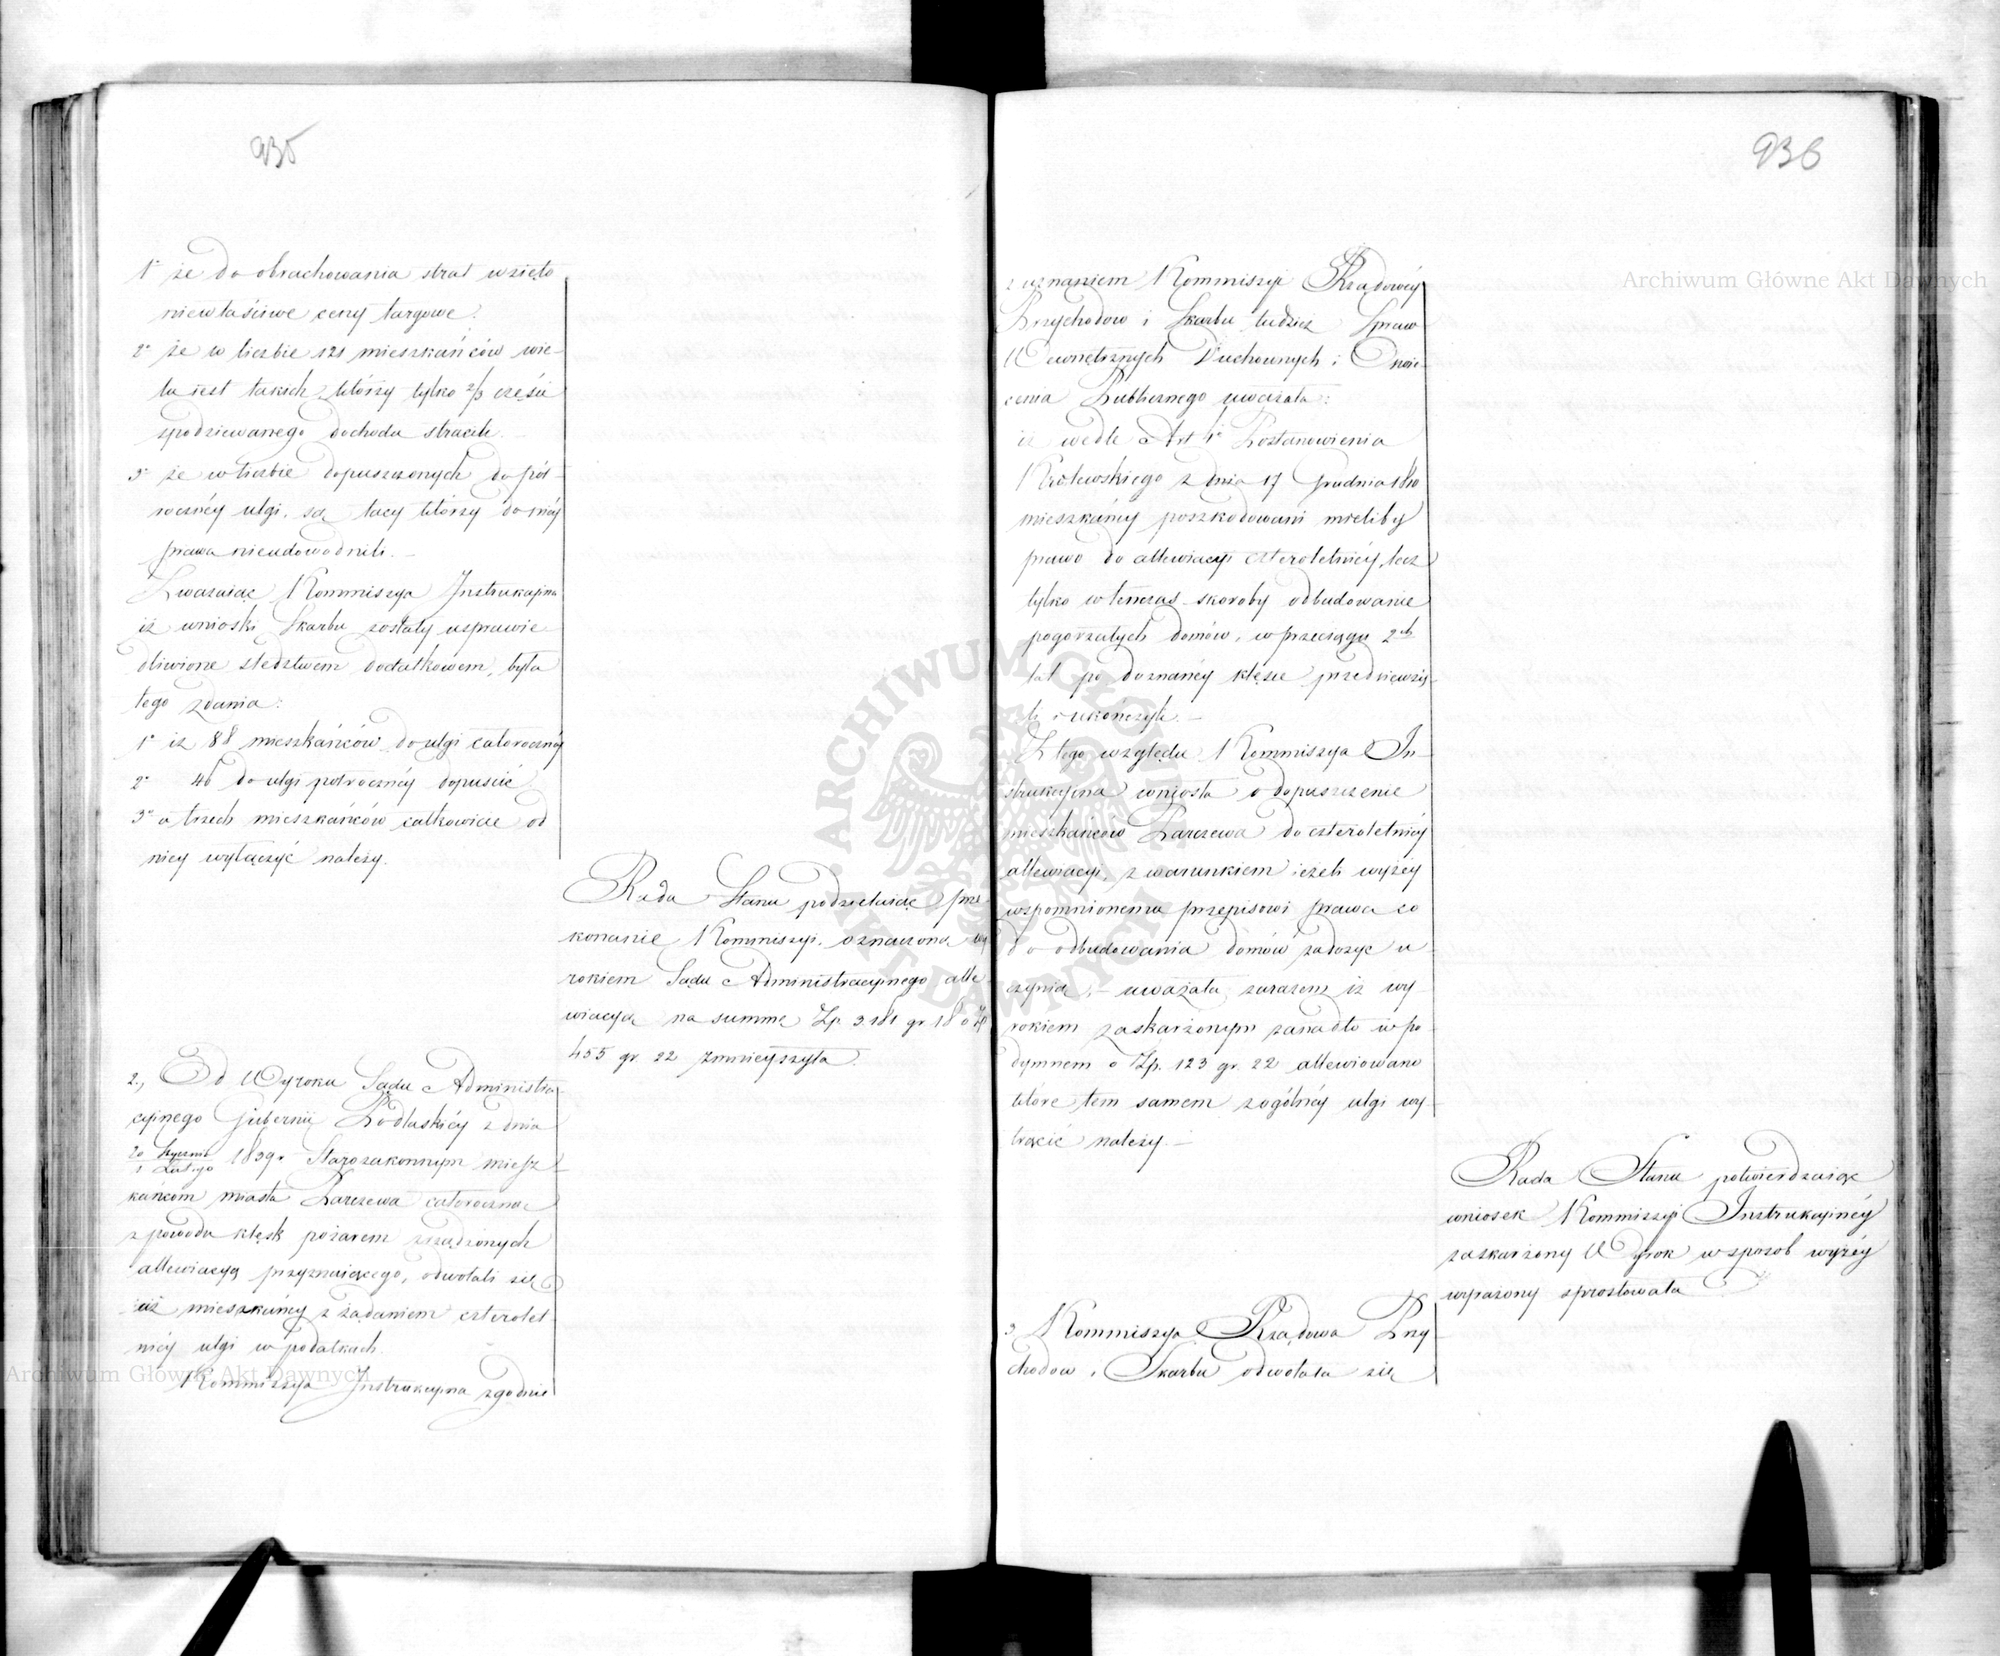 935
1° że do obrachowania strat wzięto
niewłaściwe ceny targowe.
2° że w liczbie 121 mieszkańców wie-
lu iest takich, którzy tylko 2/3 części
spodziewanego dochodu stracili. –
3° że w liczbie dopuszczonych do pół-
rocznéy ulgi, są tacy którzy do niéy
prawa nieudowodnili. –
Zważaiąc Kommissya Instrukcyina
iż wnioski Skarbu zostały usprawie-
dliwione śledztwem dodatkowem, była
tego zdania:
1° iż 88 mieszkańców do ulgi całorocznéy
2° 46 do ulgi półrocznéy dopuścić
3° a trzech mieszkańców całkowicie od
niéy wyłączyć należy.
Rada Stanu podzielaiąc prze
konanie Kommissyi, oznaczoną wy
rokiem Sądu Administracyinego alle
wiacyą na summę Zp. 3.181 gr. 18 o Zp
455 gr. 22 zmnieyszyła.
2., Od Wyroku Sądu Administra
cyinego Gubernii Podlaskiéy z dnia
20 Stycznia
1 Lutego 1839 r. Starozakonnym miesz-
kańcom miasta Parczewa całoroczną
z powodu klęsk pożarem zrządzonych
allewiacyą przyznaiącego, odwołali się
ciż mieszkańcy z żądaniem czterolet
niéy ulgi w podatkach.
Kommissya Instrukcyina zgodnie
936
z uznaniem Kommissyi Rządowéy
Przychodów i Skarbu tudzież Spraw
Wewnętrznych Duchownych i Oświe-
cenia Publicznego uważała:
iż wedle Art. 1° Postanowienia
Królewskiego z dnia 17 Grudnia 1810
mieszkańcy poszkodowani mieliby
prawo do allewiacyi czteroletniéy, lecz
tylko wtenczas skoroby odbudowanie
pogorzałych domów, w przeciągu 2ch
lat po doznanéy klęsce przedsięwzię-
li i ukończyli. –
Z tego względu Kommissya In-
strukcyina wniosła o dopuszczenie
mieszkańców Parczewa do czteroletniéy
allewiacyi, z warunkiem ieżeli wyżéy
wspomnionemu przepisowi prawa co
do odbudowania domów zadosyć u-
czynią, – uważała zarazem iż wy-
rokiem zaskarżonym zanadto w po-
dymnem o Zp. 123 gr. 22 allewiowano
które tem samem z ogólnéy ulgi wy-
trącić należy. –
Rada Stanu potwierdzaiąc
wniosek Kommissyi Instrukcyinéy
zaskarżony Wyrok w sposób wyżéy
wyrażony sprostowała
3. Kommissya Rządowa Przy
chodów i Skarbu odwołała się
Archiwum Główne Akt Dawnych
Archiwum Główne Akt Dawnych
ARCHIWUM GŁÓWNE AKT DAWNYCH